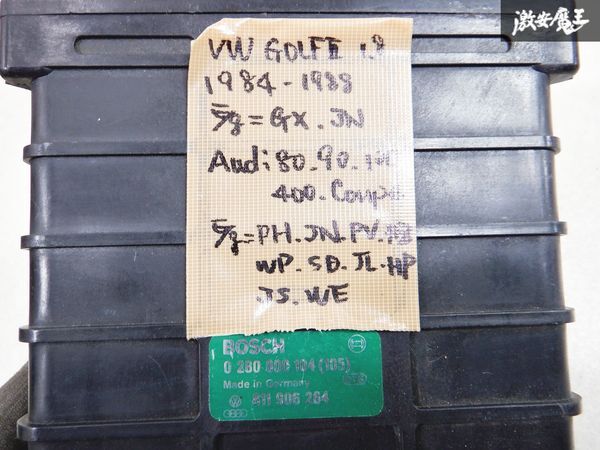 激安魔王
VW GOLFⅡ 1.8
1984-1988
E/g=GX.JN
Audi 80.90.100
400.Coupe
E/g=PH.JN.PV.
WP.SD.JL.HP
JS.WE
BOSCH
0 280 800 104 (105)
Made in Germany
811 906 264